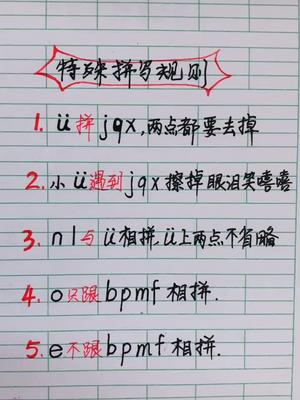 特殊拼写规则
1. ü拼jqx,两点都要去掉
2. 小ü遇到jqx擦掉眼泪笑嘻嘻
3. nl与ü相拼ü上两点不省略
4. o只跟bpmf相拼.
5. e不跟bpmf相拼.